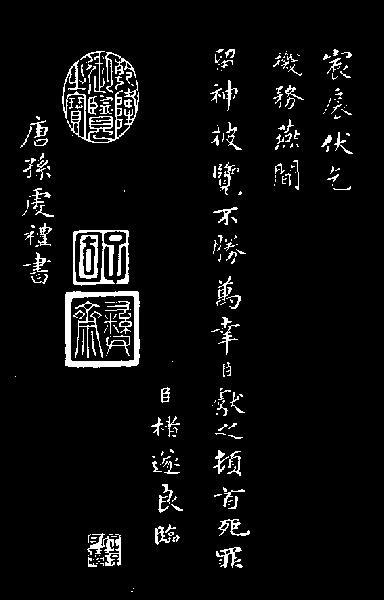 宸扆伏乞
機務燕間
留神披覽不勝萬幸臣獻之頓首死罪
臣褚遂良臨
乾隆御覽之寶
子固
彝齋
唐孫虔禮書